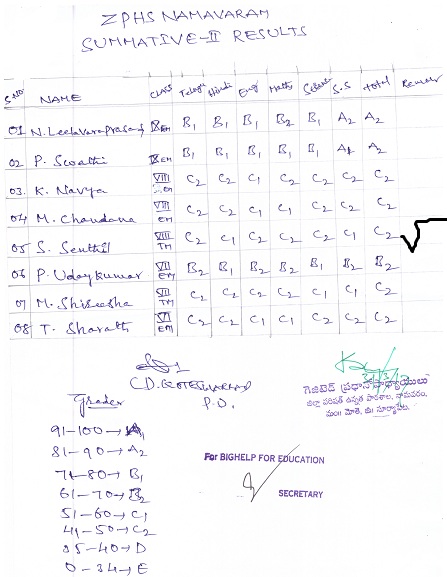 ZPHS NAMAVARAM
SUMMATIVE-II RESULTS
S.NO NAME CLASS Telugu Hindi Eng Maths Science S.S total Remar
01 N. Leelavaraprasad IX EM B1 B1 B1 B2 B1 A2 A2
02 P. Swathi IX EM B1 B1 B1 B1 B1 A2 A2
03. K. Navya VIII EM C2 C2 C1 C2 C2 C2 C2
04 M. Chandana VIII EM C2 C2 C1 C1 C2 C2 C2
05 S. Senthil VIII TM C2 C1 C2 C2 C1 C1 C2
06 P. Uday Kumar VII EM B2 B1 B2 B2 B1 B2 B2
07 M. Shireesha VII TM C2 C2 C2 C2 C1 C1 C2
08 T. Sharath VI EM C2 C2 C1 C1 C2 C2 C2
P.D.
గెజిటెడ్ ప్రధానోపాధ్యాయులు
జిల్లా పరిషత్ ఉన్నత పాఠశాల, నామవరం,
మం॥ మోతె, జి॥ సూర్యాపేట.
Grades
91-100→A1
81-90→A2
71-80→B1
61-70→B2
51-60→C1
41-50→C2
35-40→D
0-34→E
For BIGHELP FOR EDUCATION
SECRETARY